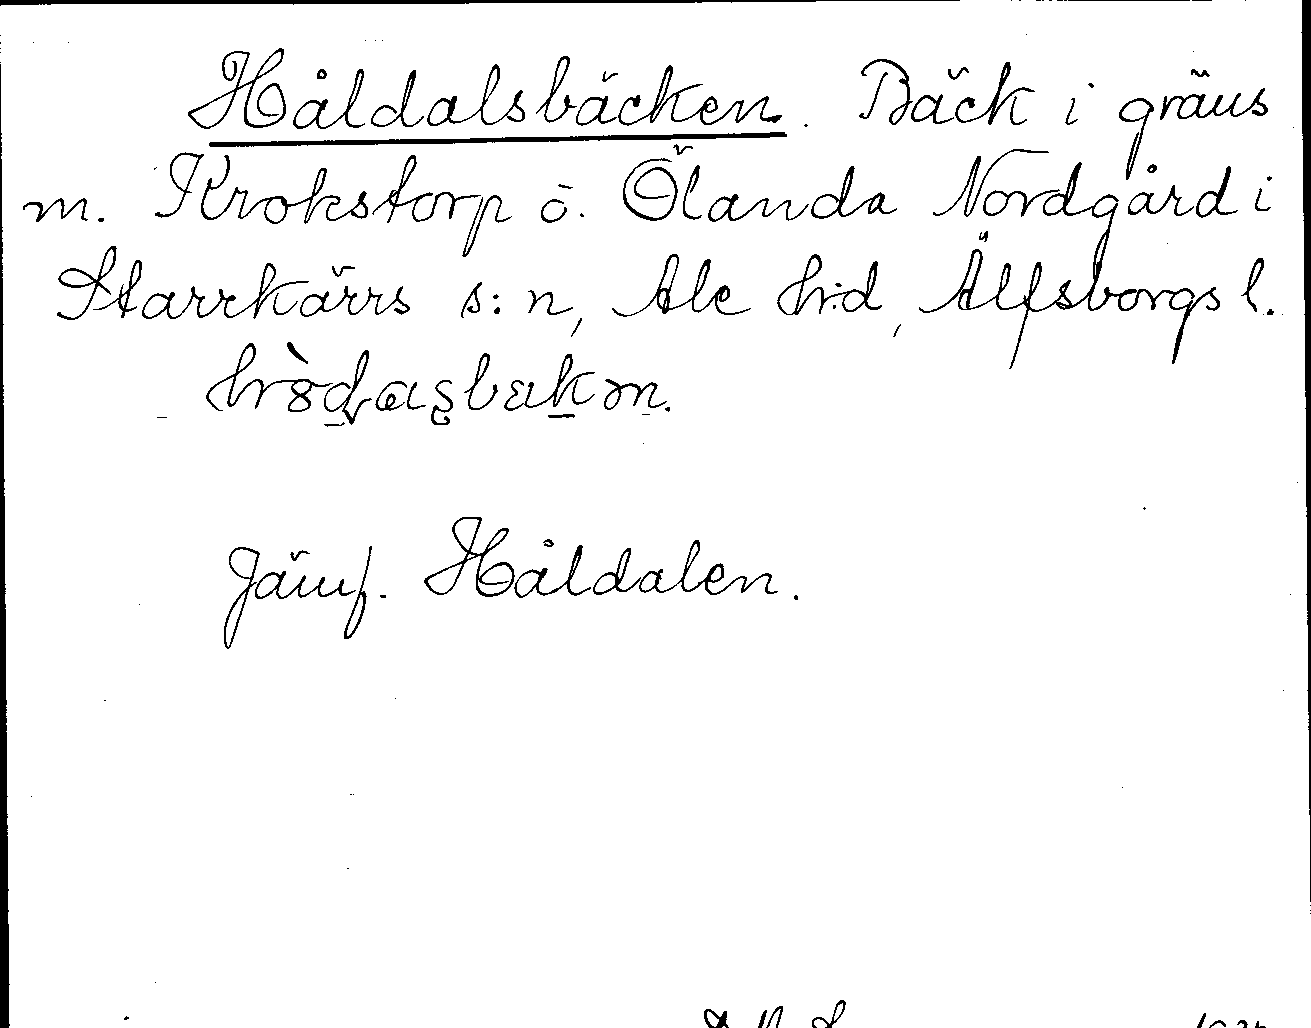 Håldalsbäcken. Bäck i gräns
m. Krokstorp o. Ölanda Nordgård i
Starrkärrs s:n, Ale hrd, Älfsborgs l.
Jämf. Håldalen.